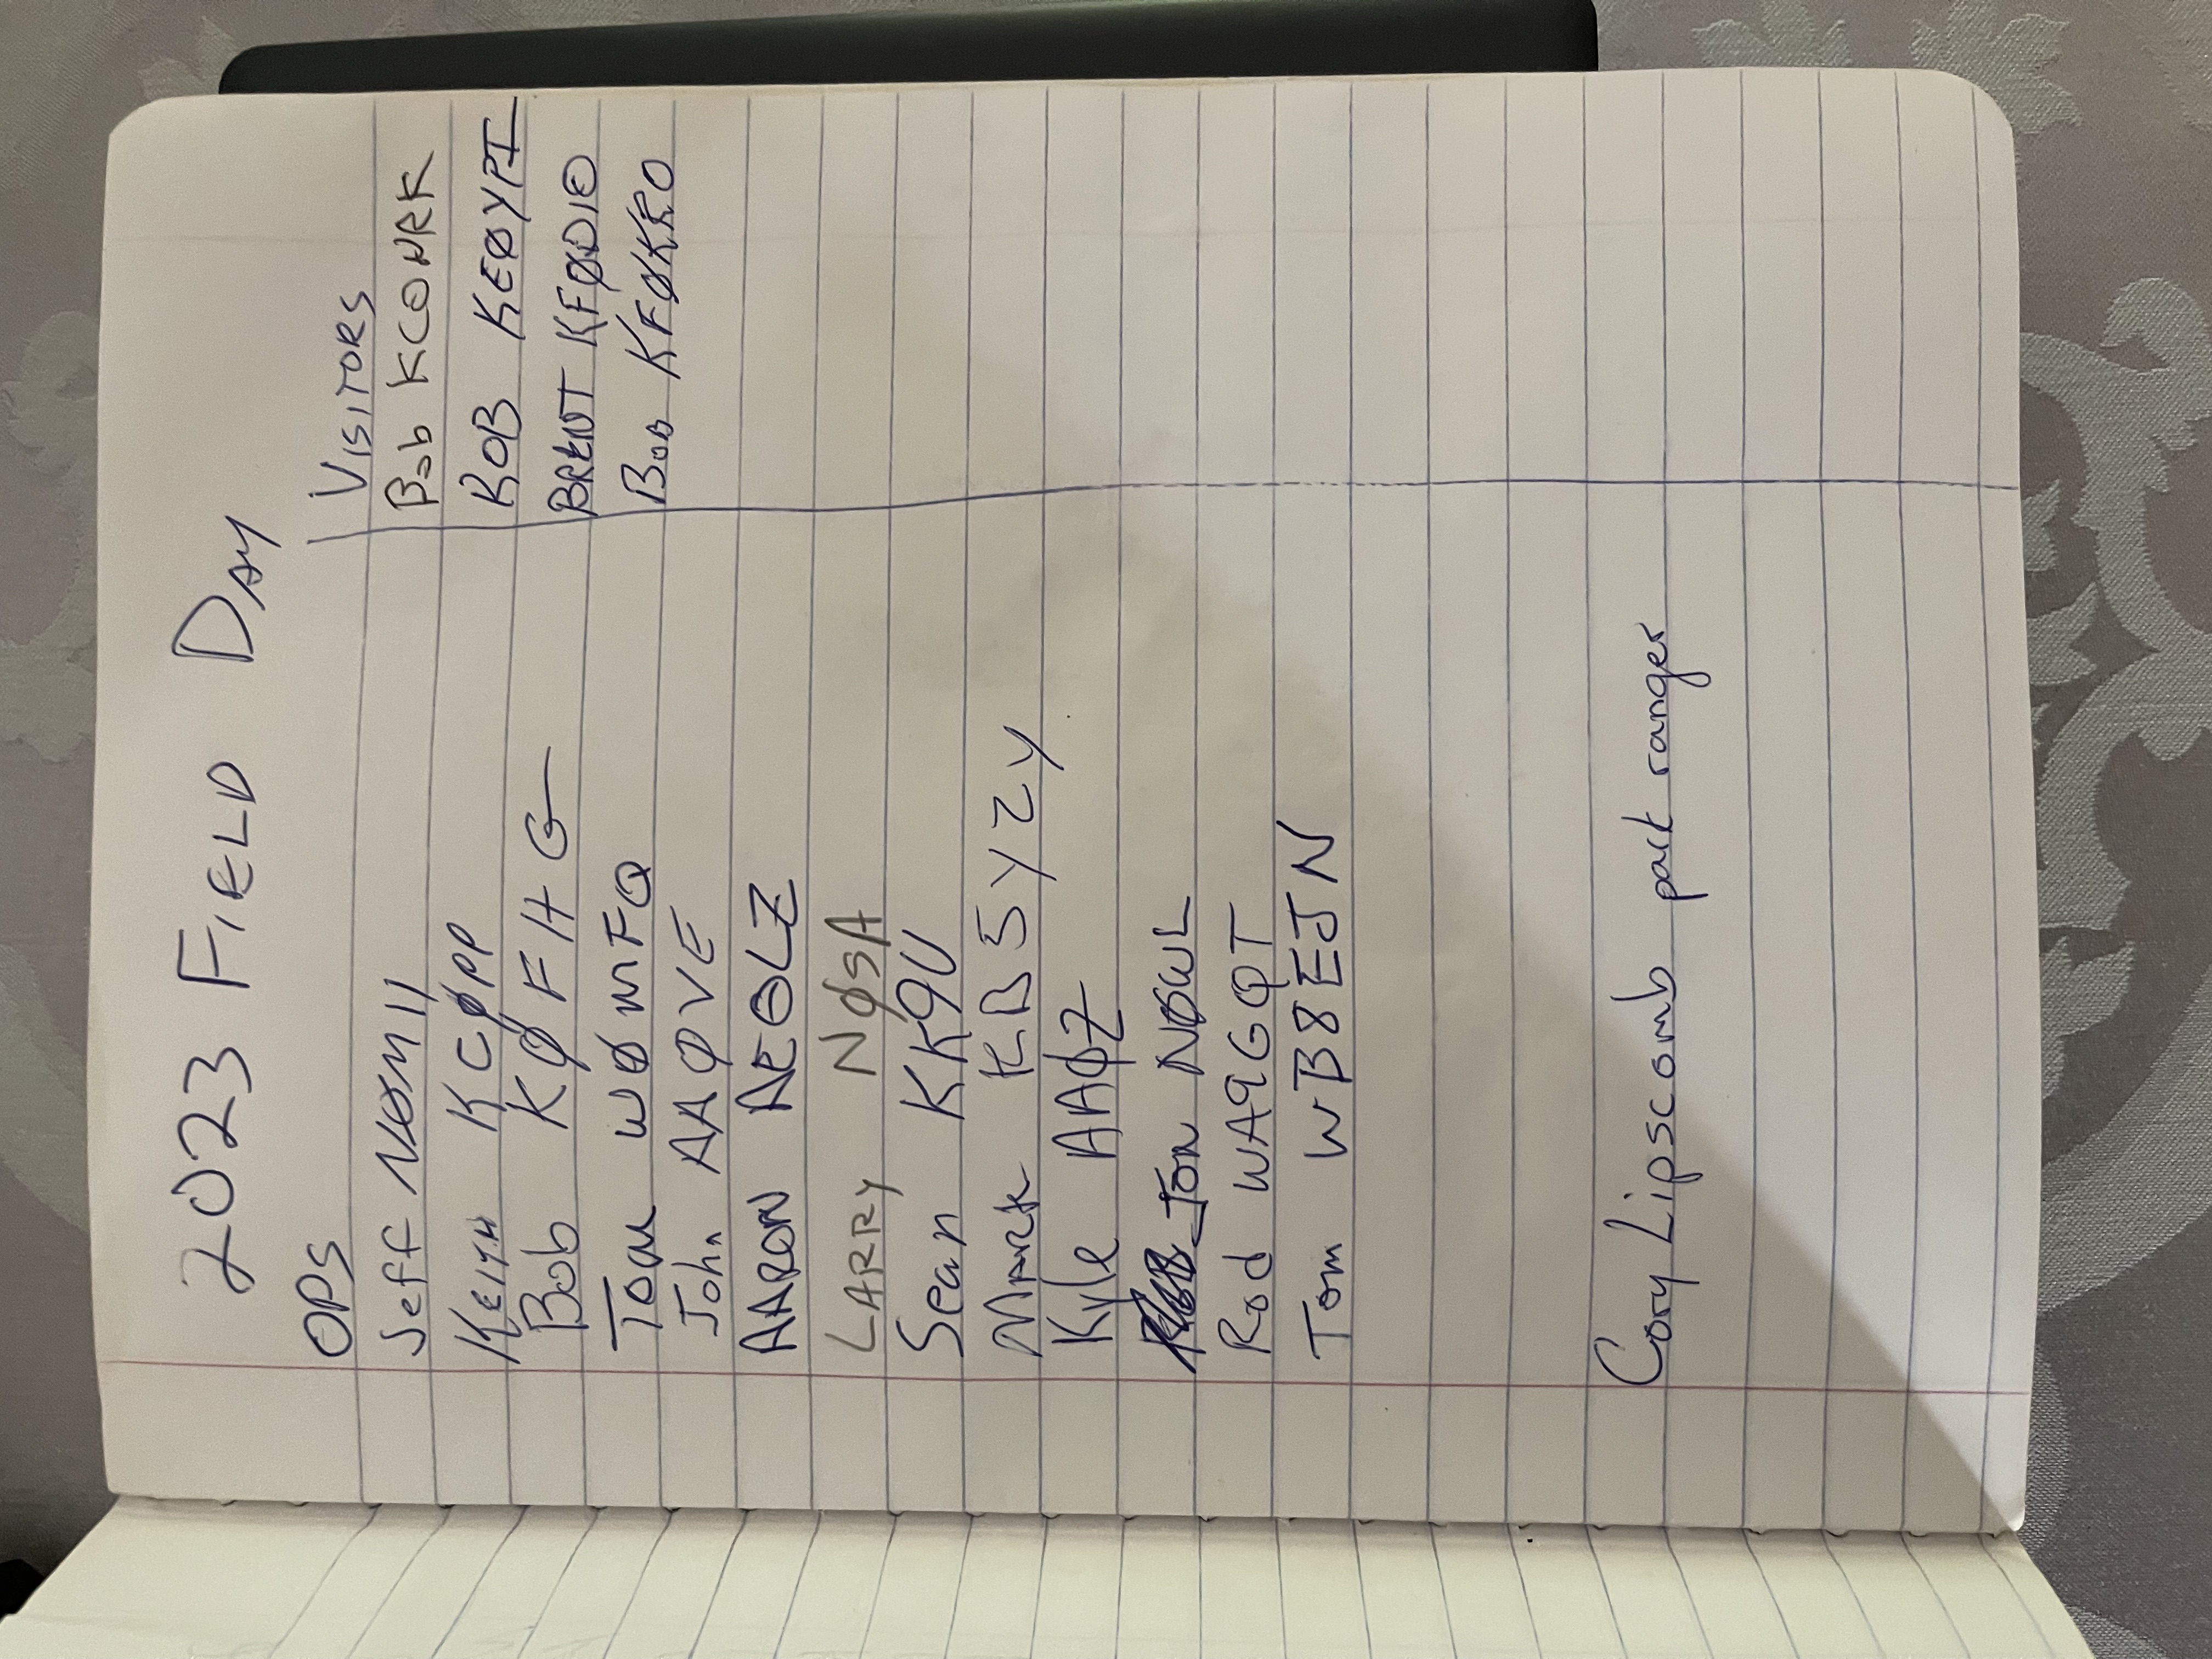 2023 FIELD DAY
OPS
Jeff NØMII
KEITH KCØPP
Bob KØFHG
Tom WØMFQ
John AAØVE
AARON AEØLZ
LARRY NØSA
Sean KK9U
Mark KB5YZY
Kyle AAØZ
Jon NØWL
Rod WA9GQT
Tom WB8EJN
Cory Lipscomb park ranger
VISITORS
Bob KCØNRK
ROB KEØYPI
BRENT KFØDIO
Bob KFØKRO